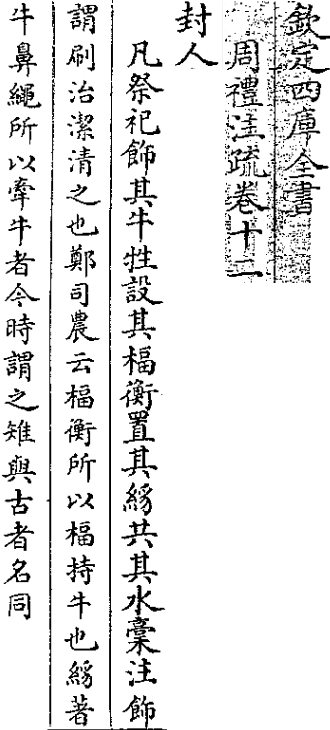 欽定四庫全書
周禮注疏卷十二
封人
凡祭祀飾其牛牲設其楅衡置其絼共其水稾注飾
謂刷治潔清之也鄭司農云楅衡所以楅持牛也絼著
牛鼻繩所以牽牛者今時謂之雉與古者名同